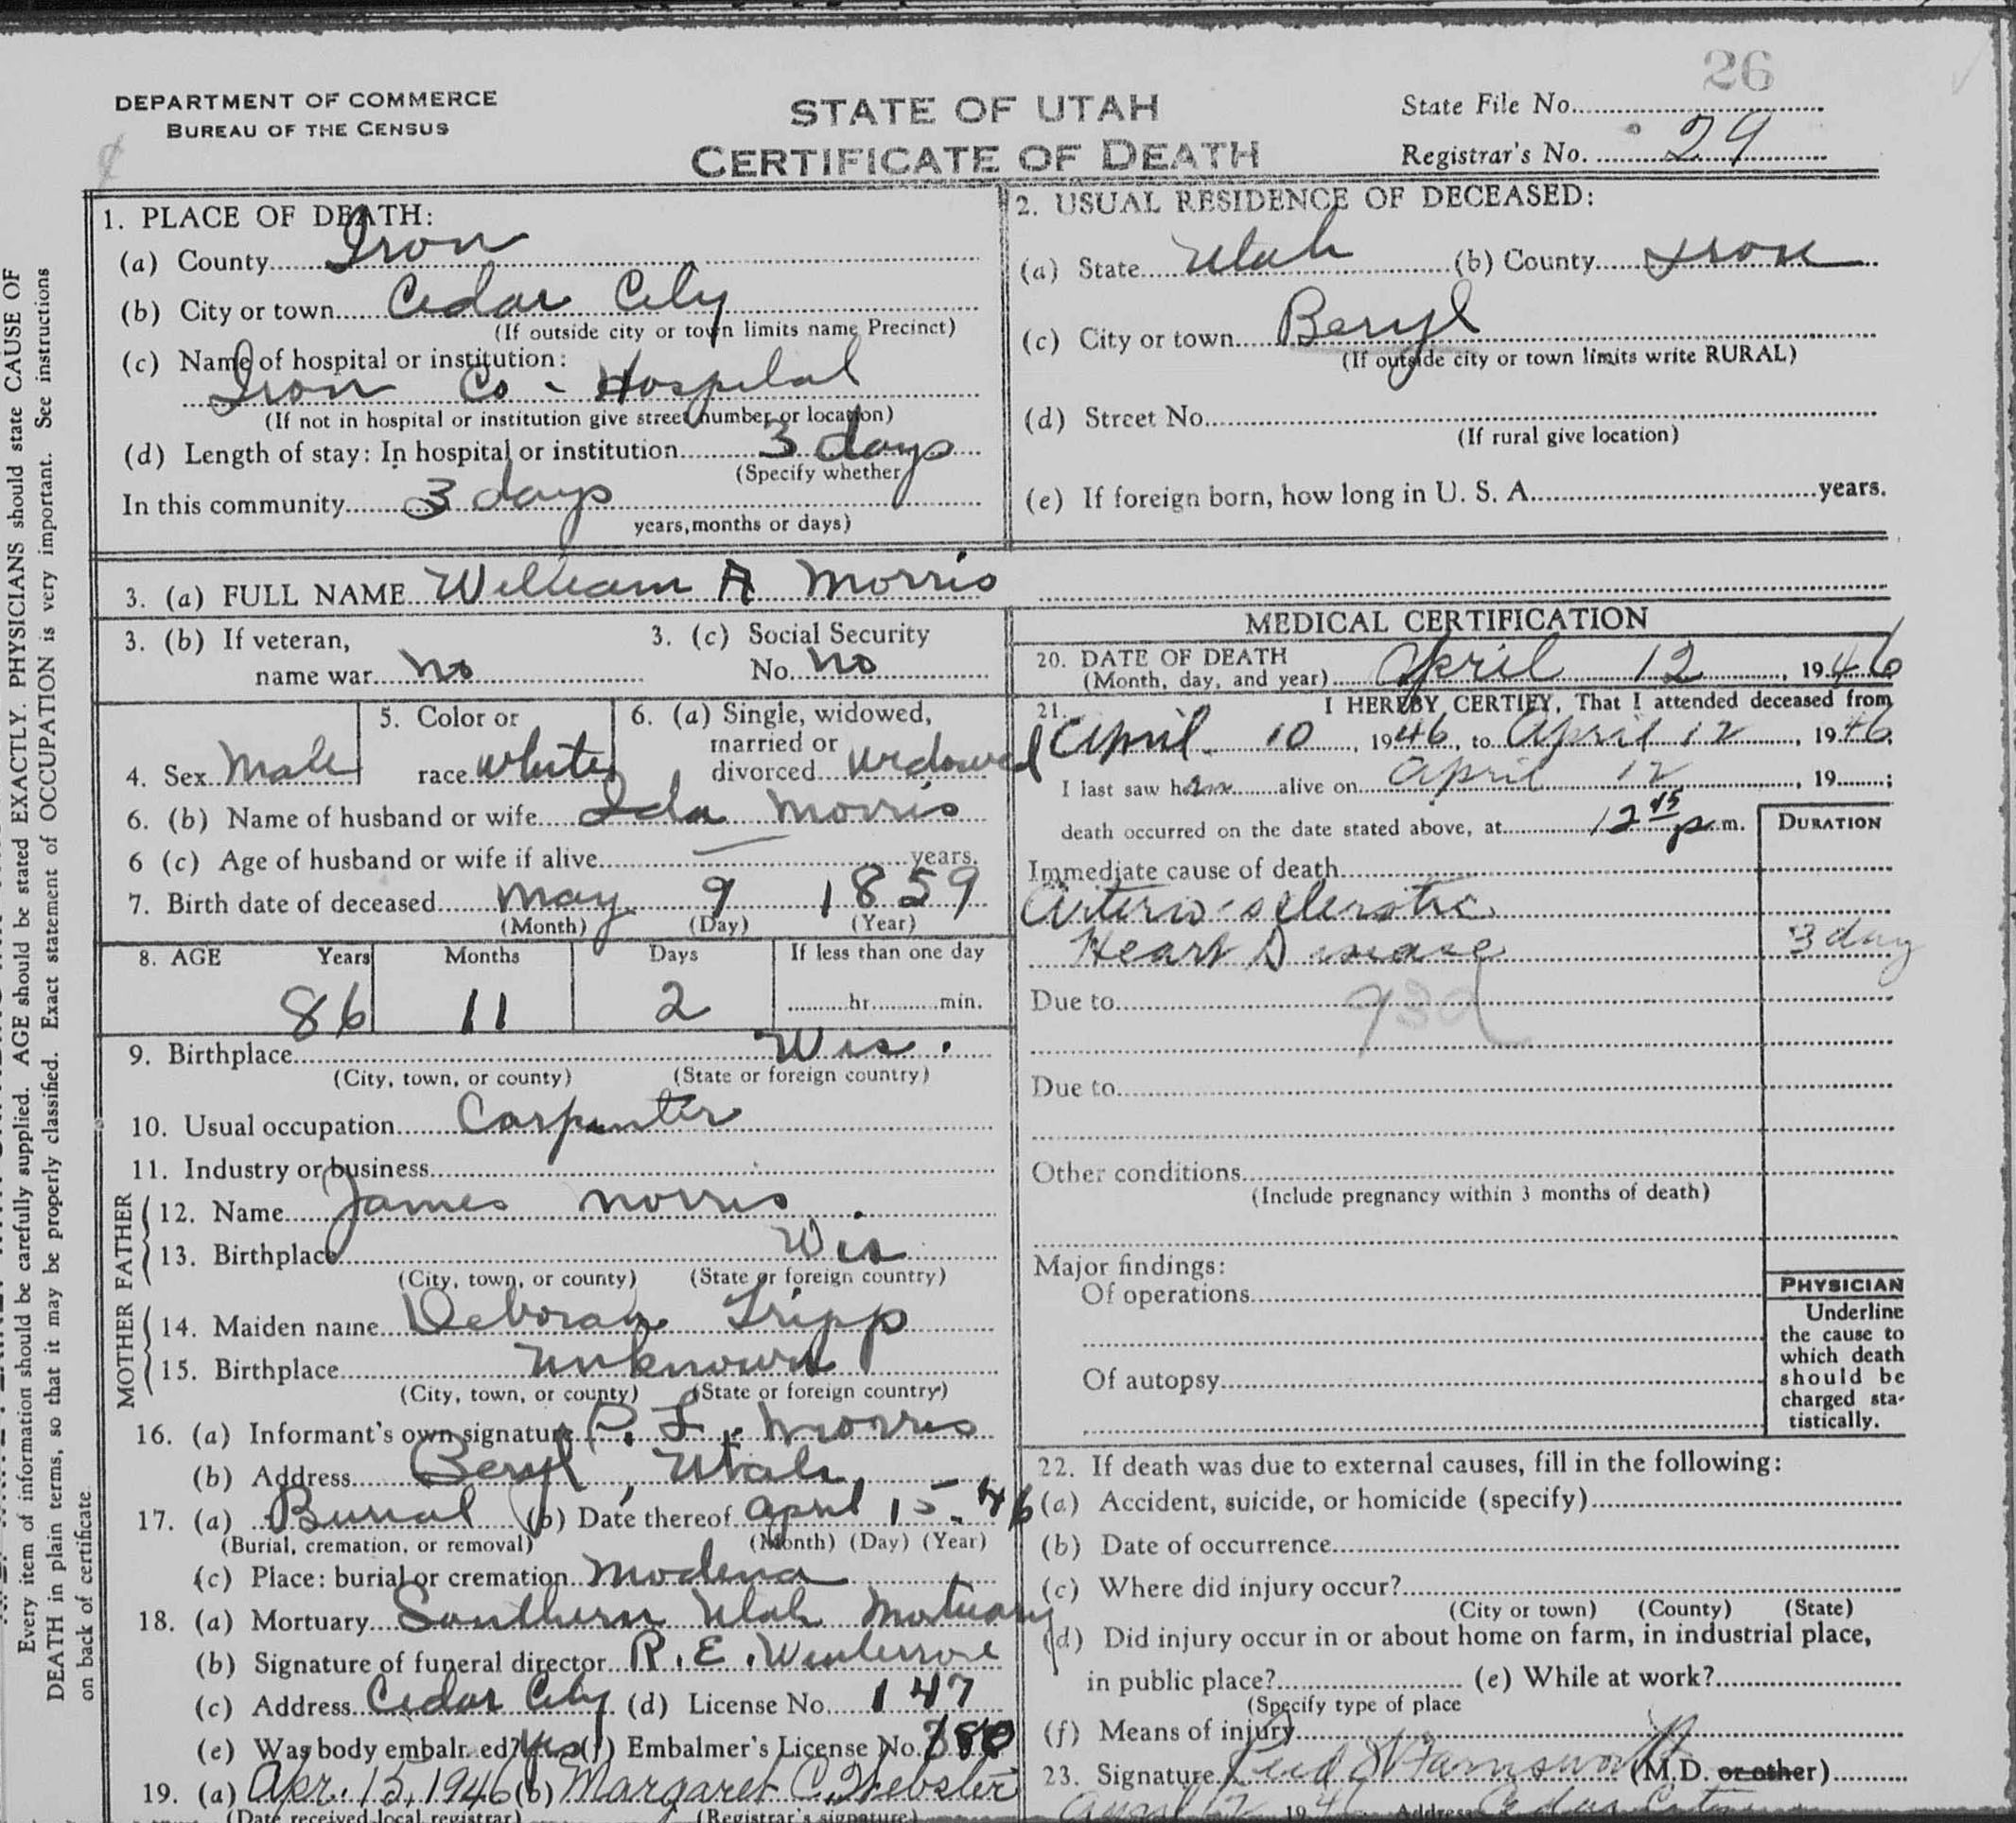 26
DEPARTMENT OF COMMERCE
BUREAU OF THE CENSUS
STATE OF UTAH
CERTIFICATE OF DEATH
State File No.
Registrar's No. 29
1. PLACE OF DEATH:
(a) County Iron
(b) City or town Cedar City
(If outside city or town limits name Precinct)
(c) Name of hospital or institution:
Iron Co - Hospital
(If not in hospital or institution give street number or location)
(d) Length of stay: In hospital or institution 3 days
(Specify whether
In this community 3 days
years, months or days)
2. USUAL RESIDENCE OF DECEASED:
(a) State Utah (b) County Iron
(c) City or town Beryl
(If outside city or town limits write RURAL)
(d) Street No.
(If rural give location)
(e) If foreign born, how long in U. S. A. years.
3. (a) FULL NAME William A Morris
3. (b) If veteran,
name war no
3. (c) Social Security
No. no
4. Sex Male
5. Color or
race white
6. (a) Single, widowed,
married or
divorced widowed
6. (b) Name of husband or wife Ida Morris
6 (c) Age of husband or wife if alive — years.
7. Birth date of deceased May 9 1859
(Month) (Day) (Year)
8. AGE Years Months Days If less than one day
86 11 2 hr. min.
9. Birthplace Wis.
(City, town, or county) (State or foreign country)
10. Usual occupation Carpenter
11. Industry or business
FATHER
12. Name James Morris
13. Birthplace Wis
(City, town, or county) (State or foreign country)
MOTHER
14. Maiden name Deborah Tripp
15. Birthplace Unknown
(City, town, or county) (State or foreign country)
16. (a) Informant's own signature P. L. Morris
(b) Address Beryl, Utah
17. (a) Burial (b) Date thereof April 15-46
(Burial, cremation, or removal) (Month) (Day) (Year)
(c) Place: burial or cremation Modena
18. (a) Mortuary Southern Utah Mortuary
(b) Signature of funeral director R. E.
(c) Address Cedar City (d) License No. 147
(e) Was body embalmed? yes (f) Embalmer's License No.
19. (a) Apr. 15, 1946 (b) Margaret C. Webster
(Date received local registrar) (Registrar's signature)
MEDICAL CERTIFICATION
20. DATE OF DEATH
(Month, day, and year) April 12, 1946
21. I HEREBY CERTIFY, That I attended deceased from
April 10, 1946, to April 12, 1946;
I last saw him alive on April 12, 19 ;
death occurred on the date stated above, at 12 45 p.m.
DURATION
Immediate cause of death
Arterio-sclerotic
Heart Disease 3 day
Due to
93d
Due to
Other conditions
(Include pregnancy within 3 months of death)
Major findings:
Of operations
Of autopsy
PHYSICIAN
Underline
the cause to
which death
should be
charged sta-
tistically.
22. If death was due to external causes, fill in the following:
(a) Accident, suicide, or homicide (specify)
(b) Date of occurrence
(c) Where did injury occur?
(City or town) (County) (State)
(d) Did injury occur in or about home on farm, in industrial place,
in public place? (e) While at work?
(Specify type of place
(f) Means of injury
23. Signature Farnsworth (M.D. or other)
April 12 1946 Address Cedar City
Every item of information should be carefully supplied. AGE should be stated EXACTLY. PHYSICIANS should state CAUSE OF
DEATH in plain terms, so that it may be properly classified. Exact statement of OCCUPATION is very important. See instructions
on back of certificate.